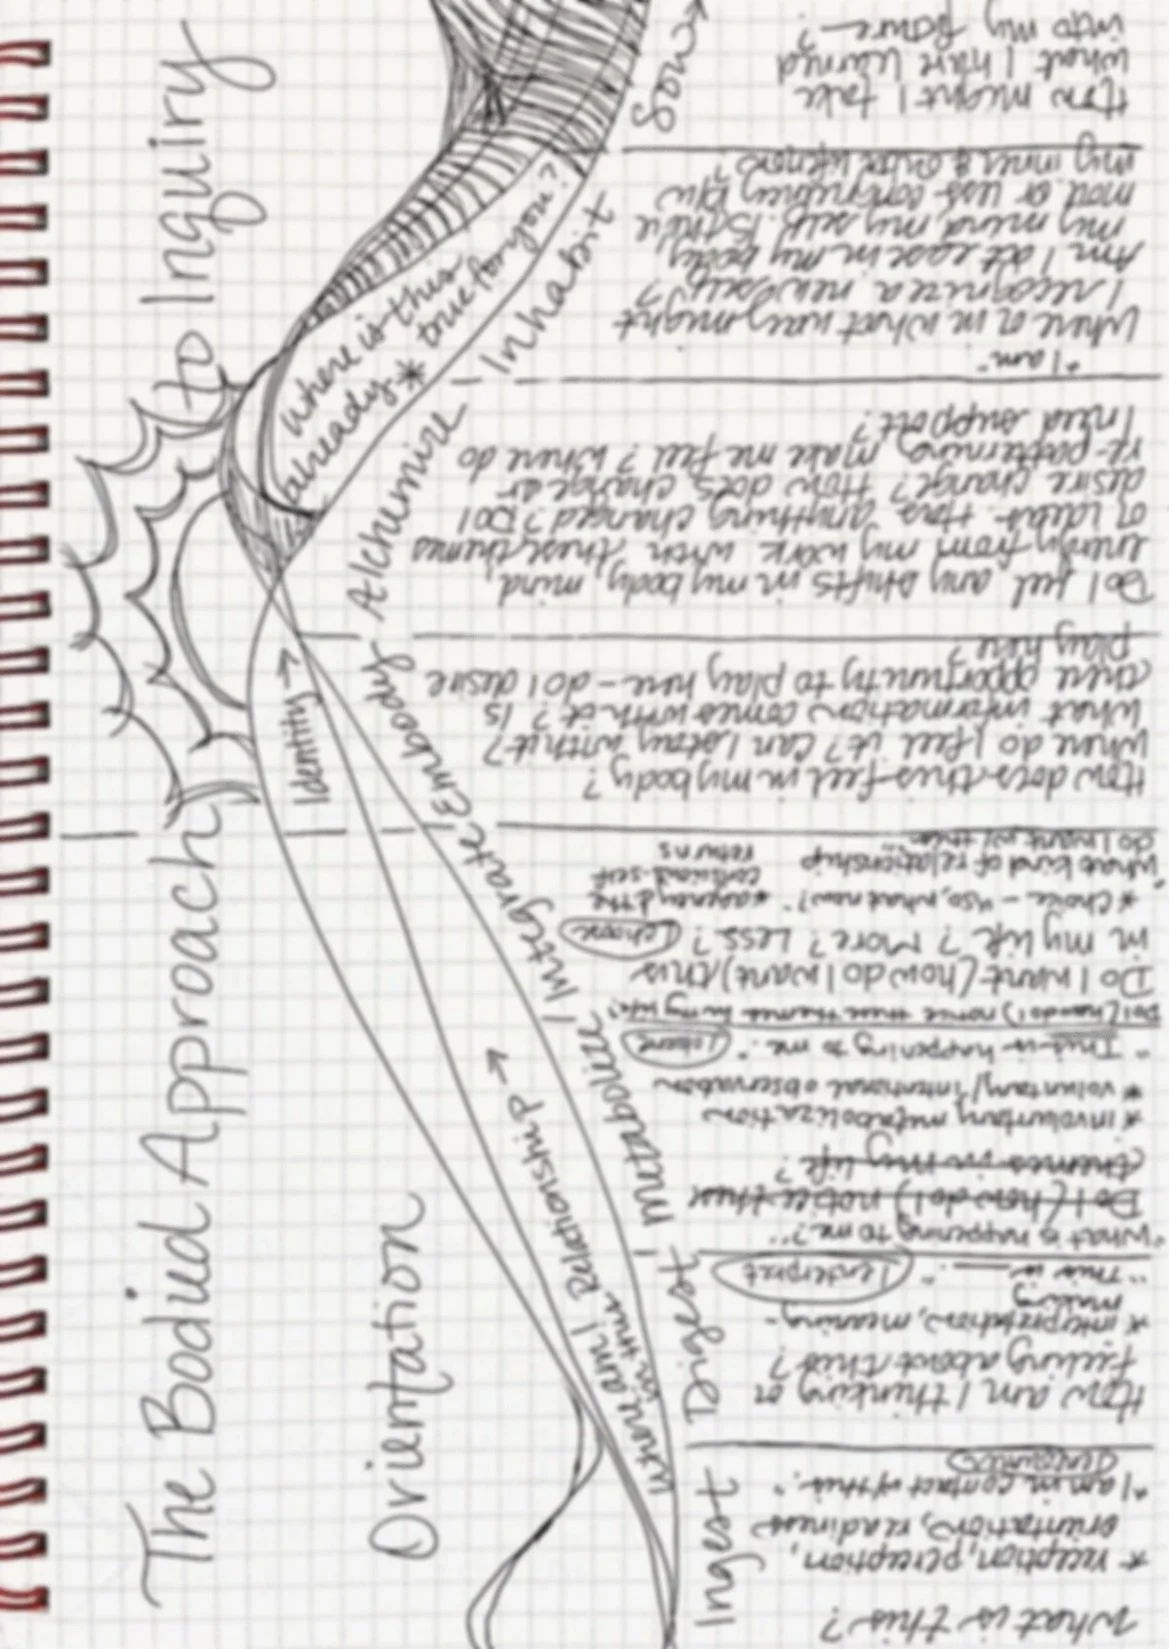 The Bodied Approach to Inquiry
Orientation
Ingest
Digest
Metabolize
Integrate
Embody
Alchemize
Inhabit
Sow →
where am I
in this
Relationship →
Identity →
where is this
already * true for you?
What is this?
* reception, perception,
orientation, readiness
"I am in contact w/ this."
How am I thinking or
feeling about this?
* interpretation, meaning-
making
"This is ___."
I interpret
"What is happening to me?"
Do I (how do I) notice these
themes in my life?
* involuntary metabolization
* voluntary/intentional observation
"This is happening to me."
Do I (how do I) notice these themes in my life?
Do I want (how do I want) this
in my life? More? Less?
I choose
* choice - "so, what now?"
* agency & the
conscious self
returns
"what kind of relationship
do I want w/ this"
How does this feel in my body?
Where do I feel it? Can I stay with it?
What information comes with it? Is
there opportunity to play here - do I desire
play here?
Do I feel any shifts in my body, mind,
energy from my work with these themes
or ideas? Has anything changed? Do I
desire change? How does change or
re-patterning make me feel? Where do
I need support?
"I am"
Where or in what ways might
I recognize a new self?
Am I at ease in my body
my mind my self. Is there
more or less congruency btw
my inner & outer life now?
How might I take
what I have learned
into my future?